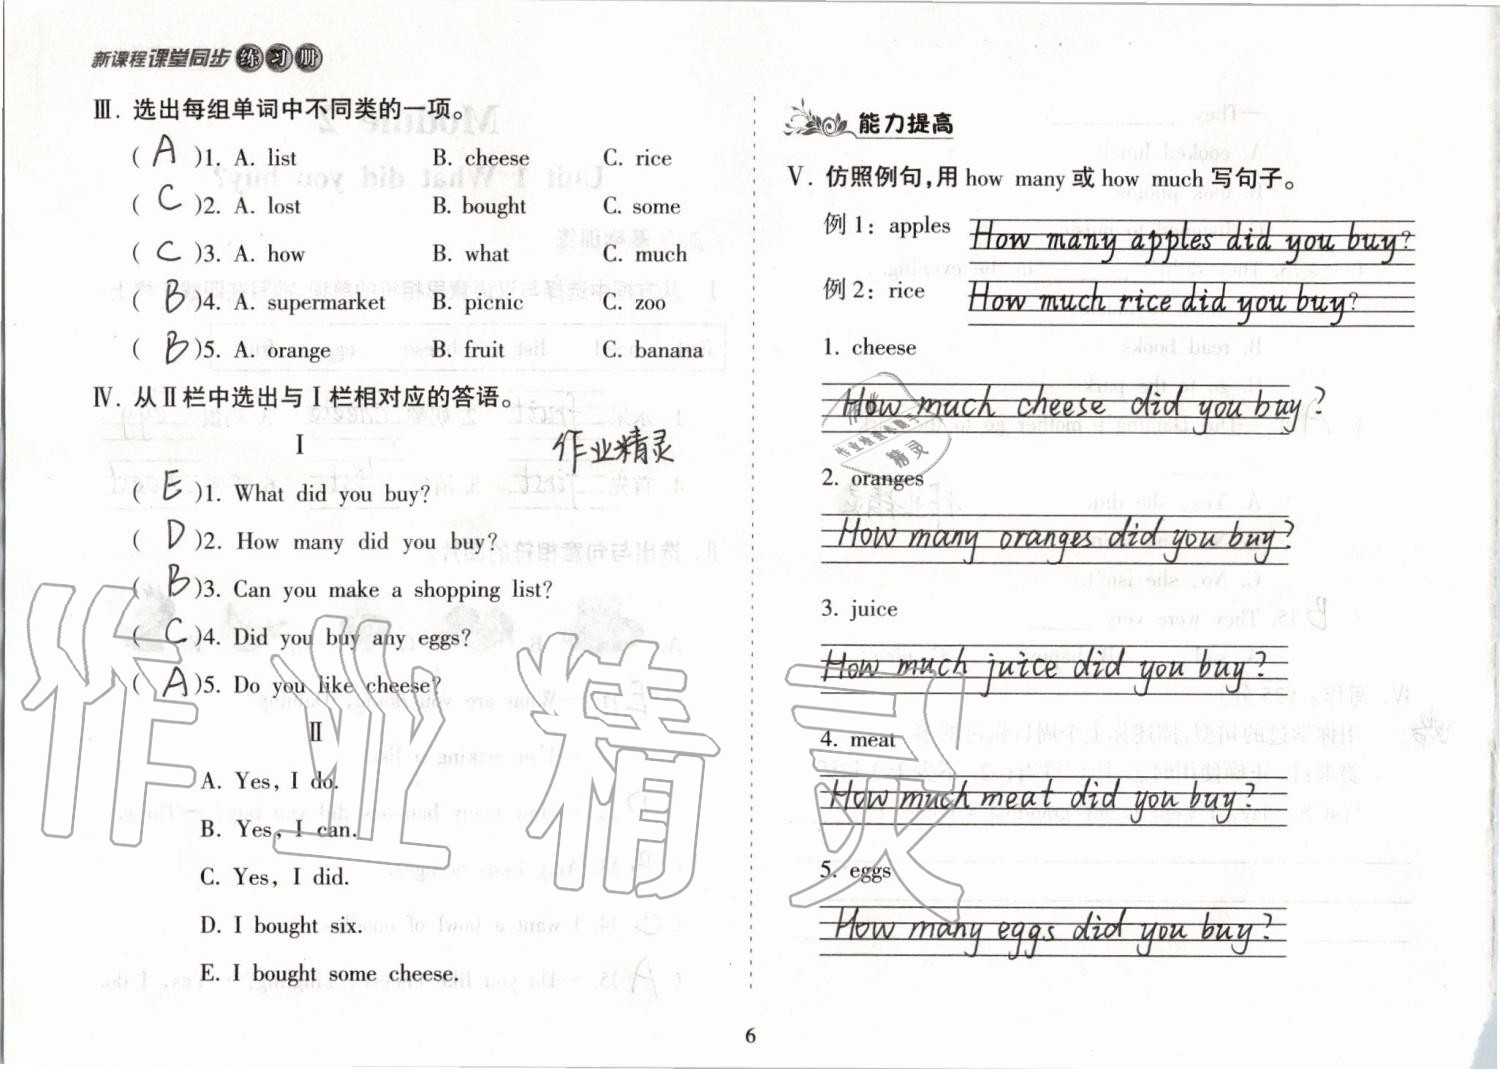 新课程课堂同步练习册
Ⅲ. 选出每组单词中不同类的一项。
( A )1. A. list B. cheese C. rice
( C )2. A. lost B. bought C. some
( C )3. A. how B. what C. much
( B )4. A. supermarket B. picnic C. zoo
( B )5. A. orange B. fruit C. banana
Ⅳ. 从Ⅱ栏中选出与Ⅰ栏相对应的答语。
Ⅰ
作业精灵
( E )1. What did you buy?
( D )2. How many did you buy?
( B )3. Can you make a shopping list?
( C )4. Did you buy any eggs?
( A )5. Do you like cheese?
Ⅱ
A. Yes, I do.
B. Yes, I can.
C. Yes, I did.
D. I bought six.
E. I bought some cheese.
能力提高
Ⅴ. 仿照例句,用 how many 或 how much 写句子。
例 1: apples How many apples did you buy?
例 2: rice How much rice did you buy?
1. cheese
How much cheese did you buy?
2. oranges
How many oranges did you buy?
3. juice
How much juice did you buy?
4. meat
How much meat did you buy?
5. eggs
How many eggs did you buy?
6
作业精灵